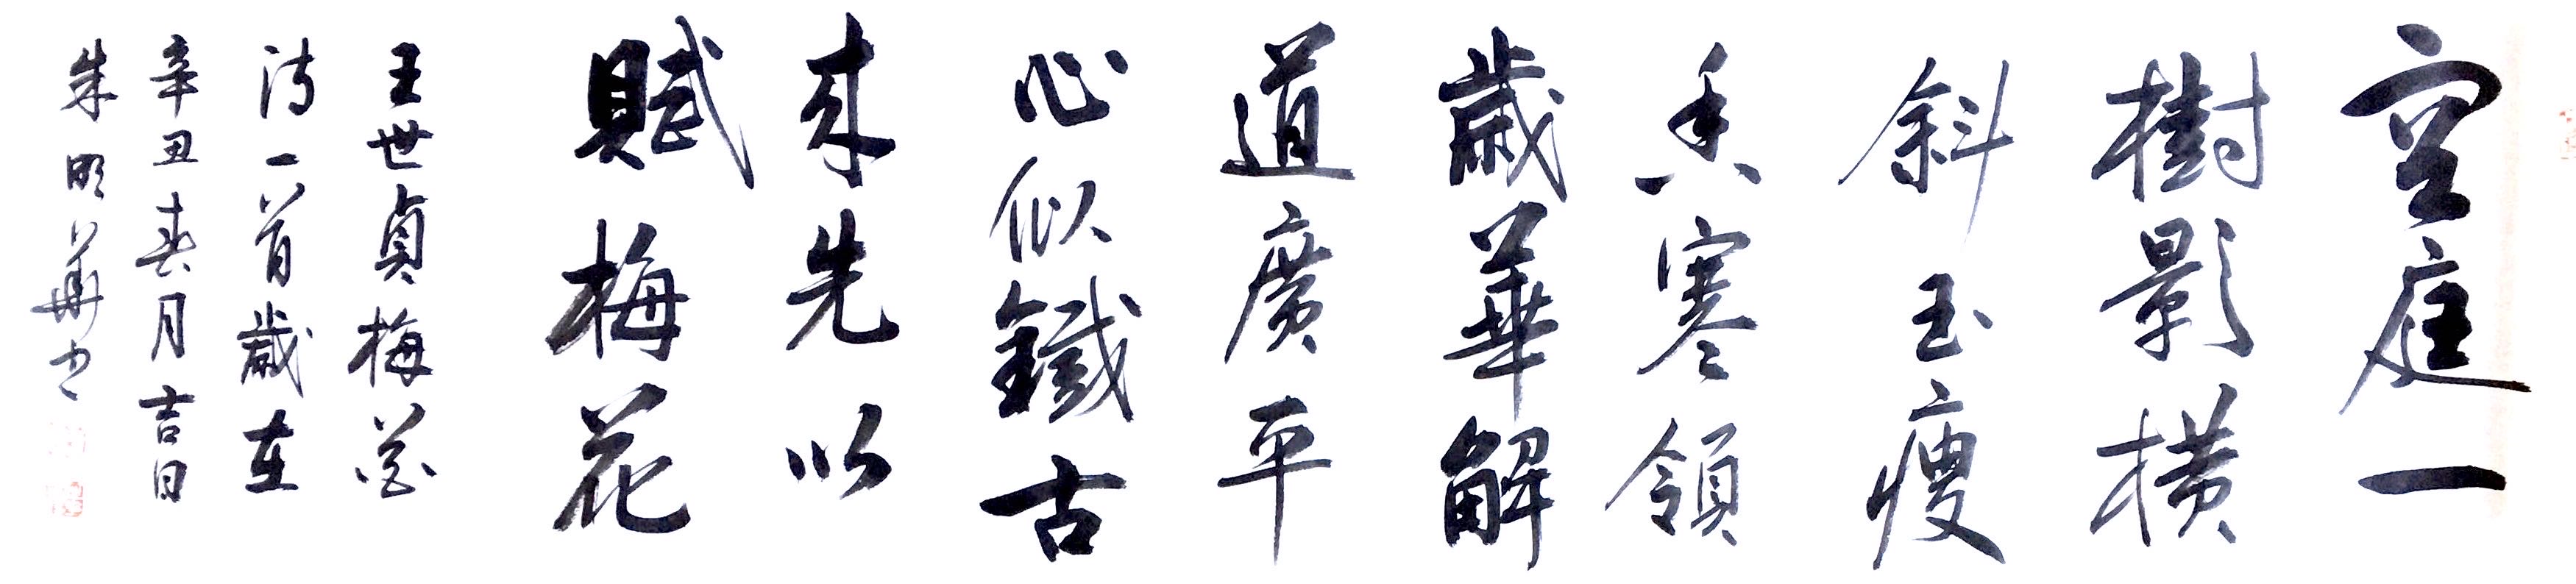 空庭一
樹影橫
斜玉瘦
香寒領
歲華解
道廣平
心似鐵古
來先以
賦梅花
王世貞梅花
詩一首歲在
辛丑春月吉日
朱明華書